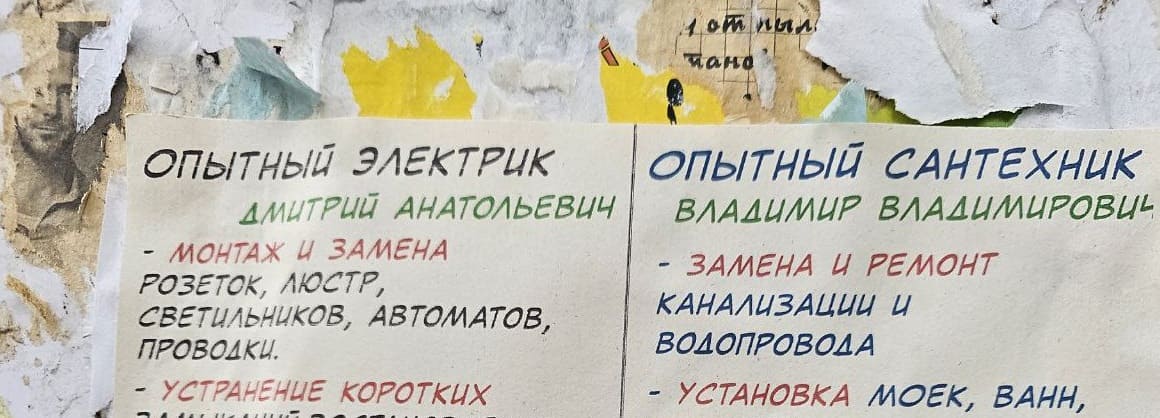 1 от пыл
тано
ОПЫТНЫЙ ЭЛЕКТРИК
ДМИТРИЙ АНАТОЛЬЕВИЧ
- МОНТАЖ И ЗАМЕНА
РОЗЕТОК, ЛЮСТР,
СВЕТИЛЬНИКОВ, АВТОМАТОВ,
ПРОВОДКИ.
- УСТРАНЕНИЕ КОРОТКИХ
ОПЫТНЫЙ САНТЕХНИК
ВЛАДИМИР ВЛАДИМИРОВИЧ
- ЗАМЕНА И РЕМОНТ
КАНАЛИЗАЦИИ И
ВОДОПРОВОДА
- УСТАНОВКА МОЕК, ВАНН,